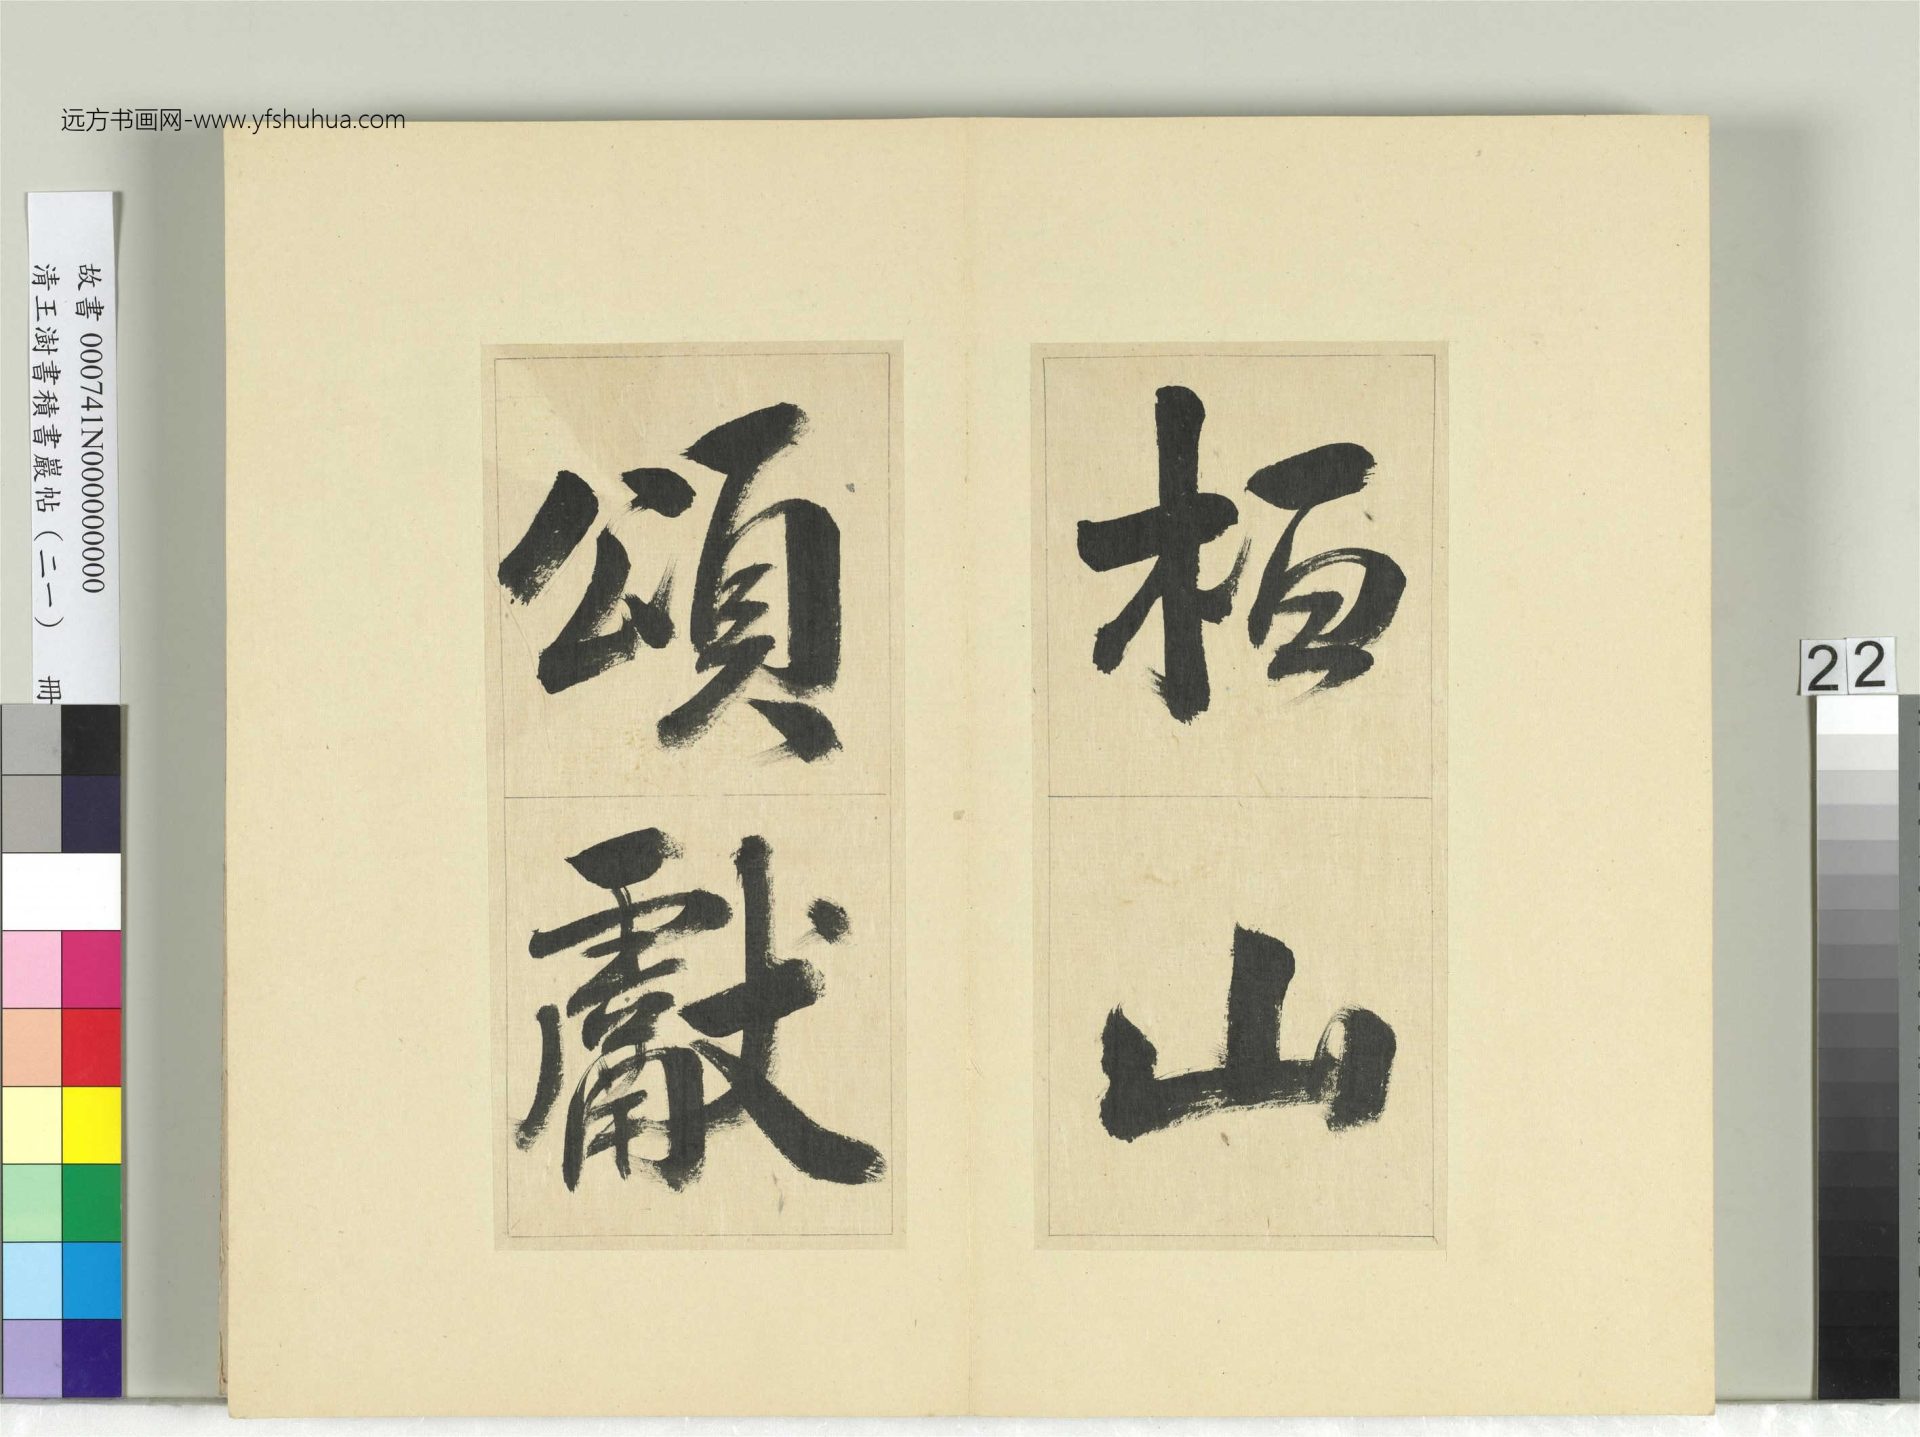 远方书画网-www.yfshuhua.com
故書 000741N000000000
清王澍書積書巖帖（二一） 冊
桓山
頌獻
22